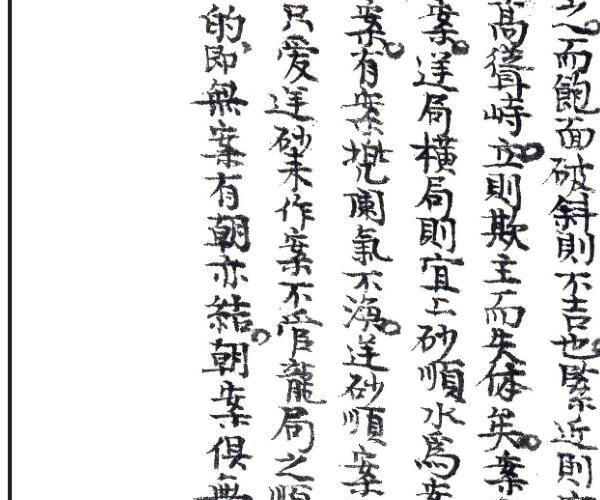 之而飽面破斜則不吉也緊近則
高聳峙立則欺主而失体矣案
案逆局橫局則宜上砂順水為案
案有案堂兜闌氣不渙逆砂順案
只爱逆砂来作案不管龍局之順
的即無案有朝亦結朝案俱無